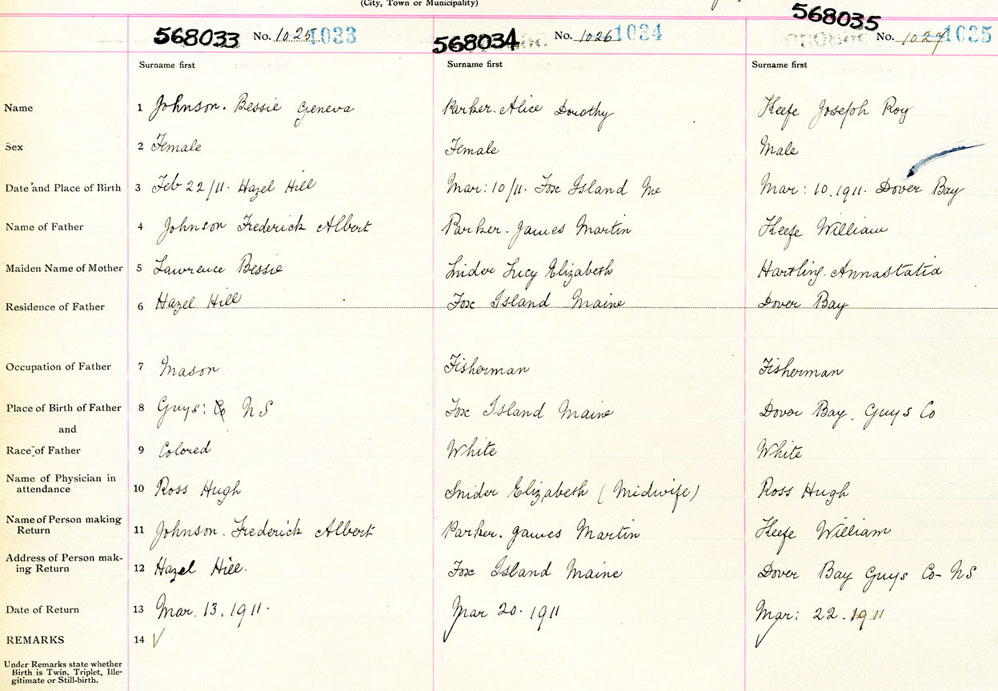 (City, Town or Municipality)
568033 No. 1025 1033 568034 No. 1026 1034 568035 No. 1027 1035
Surname first Surname first Surname first
Name 1 Johnson. Bessie Geneva Parker. Alice Dorothy Keefe Joseph Roy
Sex 2 Female Female Male
Date and Place of Birth 3 Feb 22/11. Hazel Hill Mar: 10/11. Fox Island Me Mar: 10. 1911. Dover Bay
Name of Father 4 Johnson Frederick Albert Parker. James Martin Keefe William
Maiden Name of Mother 5 Lawrence Bessie Snider Lucy Elizabeth Hartling. Annastatia
Residence of Father 6 Hazel Hill Fox Island Maine Dover Bay
Occupation of Father 7 Mason Fisherman Fisherman
Place of Birth of Father 8 Guys: Co NS Fox Island Maine Dover Bay. Guys Co
and
Race of Father 9 Colored White White
Name of Physician in
attendance 10 Ross Hugh Snider Elizabeth (Midwife) Ross Hugh
Name of Person making
Return 11 Johnson. Frederick Albert Parker. James Martin Keefe William
Address of Person mak-
ing Return 12 Hazel Hill. Fox Island Maine Dover Bay Guys Co- NS
Date of Return 13 Mar. 13. 1911. Mar 20. 1911 Mar: 22. 1911
REMARKS 14 √
Under Remarks state whether
Birth is Twin, Triplet, Ille-
gitimate or Still-birth.